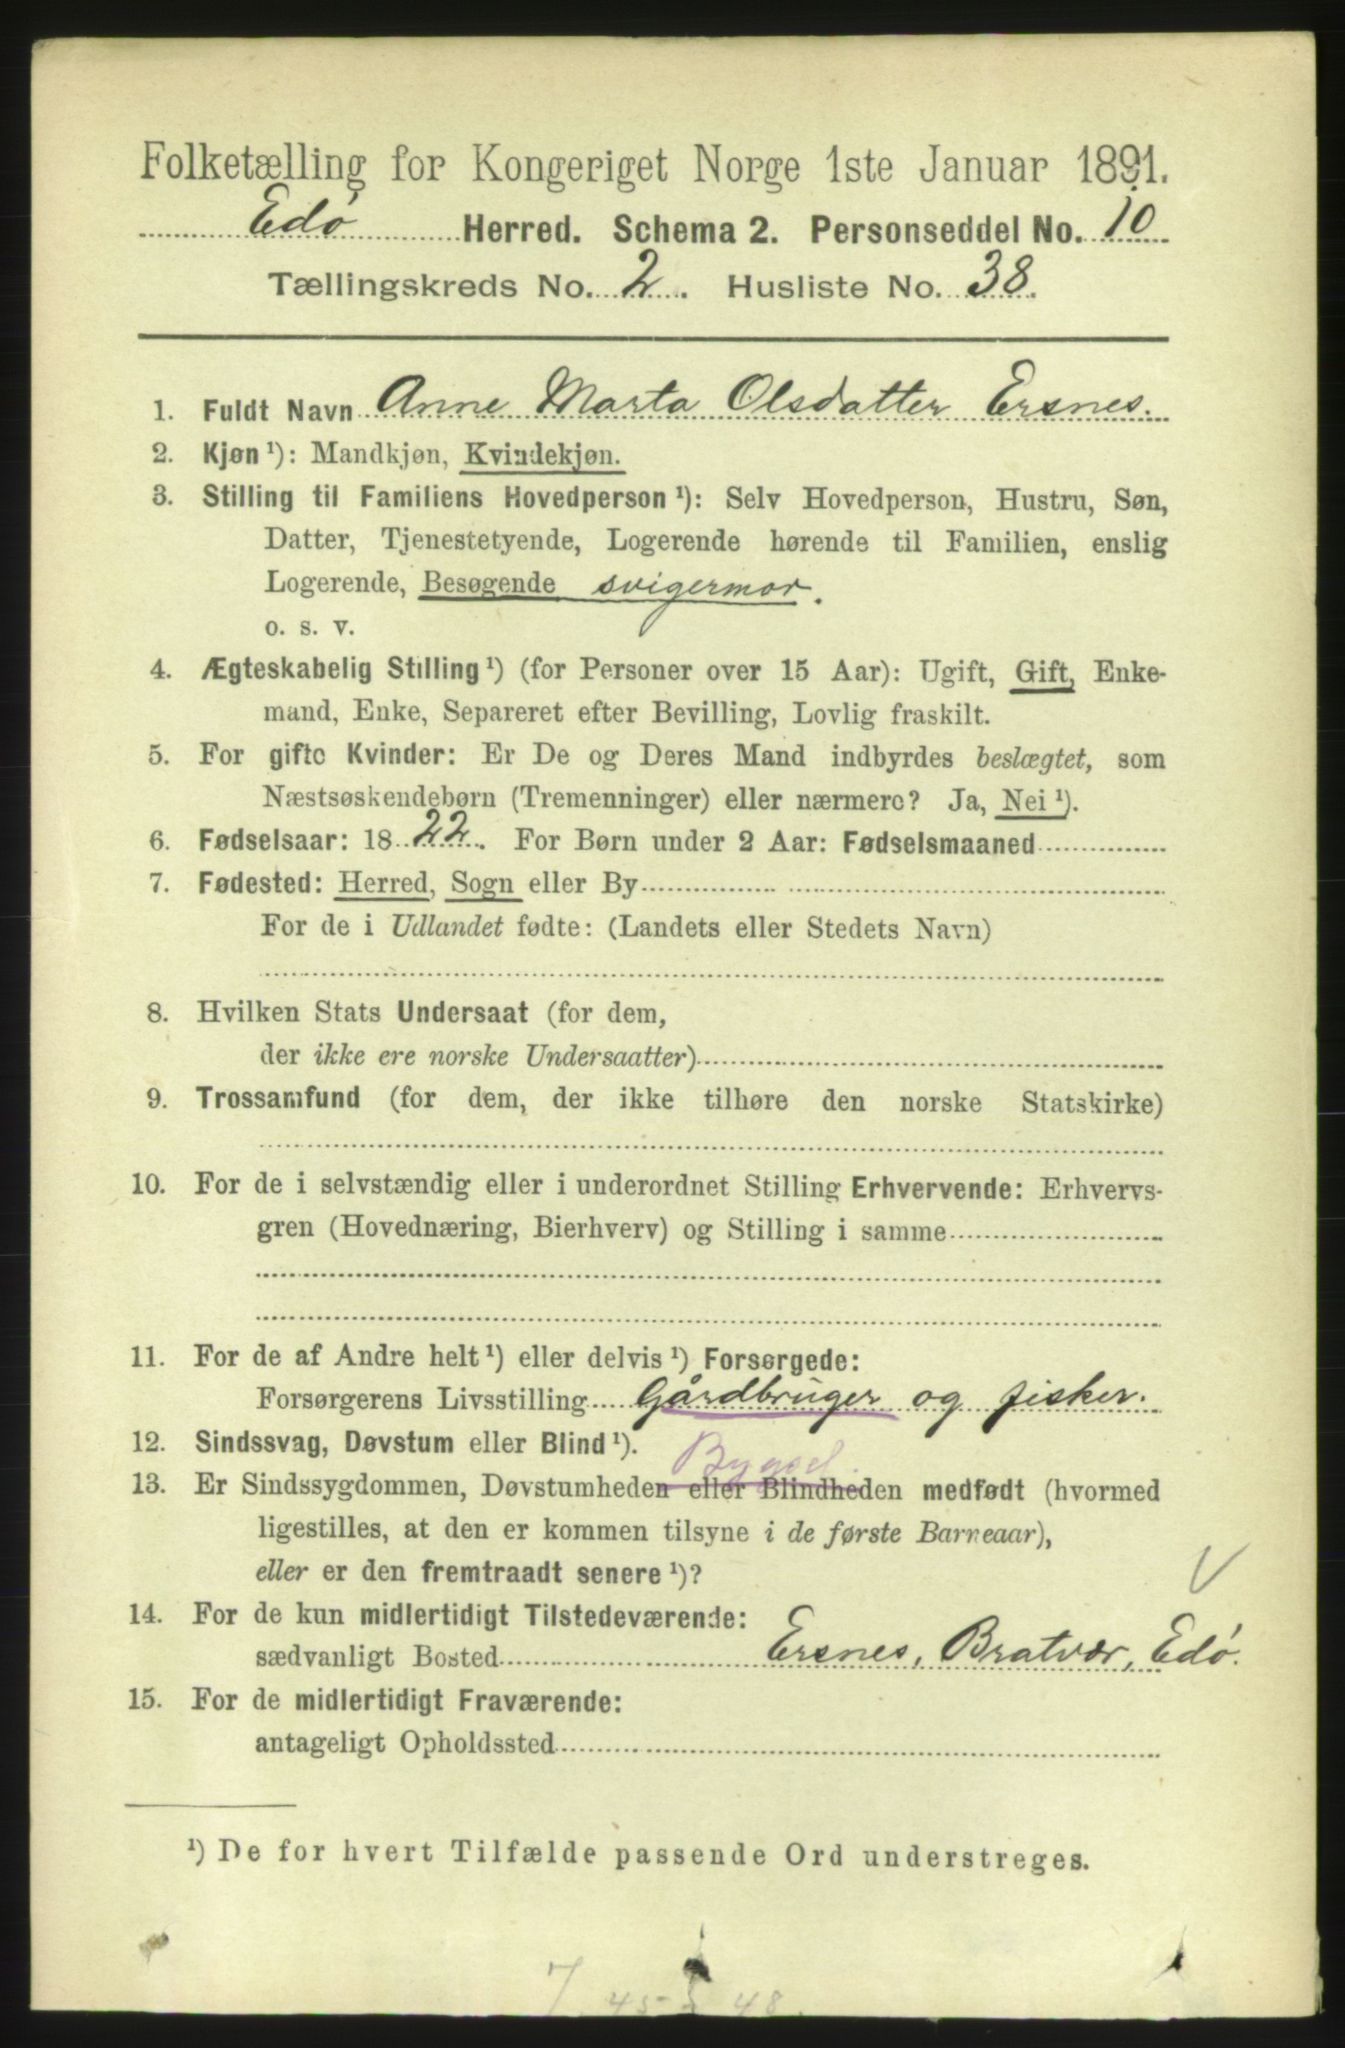 Folketælling for Kongeriget Norge 1ste Januar 1891.
Edø Herred. Schema 2. Personseddel No. 10
Tællingskreds No. 2. Husliste No. 38.
1. Fuldt Navn Anne Marta Olsdatter Ersnes.
2. Kjøn ¹): Mandkjøn, Kvindekjøn.
3. Stilling til Familiens Hovedperson ¹): Selv Hovedperson, Hustru, Søn,
Datter, Tjenestetyende, Logerende hørende til Familien, enslig
Logerende, Besøgende svigermor.
o. s. v.
4. Ægteskabelig Stilling ¹) (for Personer over 15 Aar): Ugift, Gift, Enke-
mand, Enke, Separeret efter Bevilling, Lovlig fraskilt.
5. For gifte Kvinder: Er De og Deres Mand indbyrdes beslægtet, som
Næstsøskendebørn (Tremenninger) eller nærmere? Ja, Nei ¹).
6. Fødselsaar: 1822. For Børn under 2 Aar: Fødselsmaaned
7. Fødested: Herred, Sogn eller By
For de i Udlandet fødte: (Landets eller Stedets Navn)
8. Hvilken Stats Undersaat (for dem,
der ikke ere norske Undersaatter)
9. Trossamfund (for dem, der ikke tilhøre den norske Statskirke)
10. For de i selvstændig eller i underordnet Stilling Erhvervende: Erhvervs-
gren (Hovednæring, Bierhverv) og Stilling i samme
11. For de af Andre helt ¹) eller delvis ¹) Forsørgede:
Forsørgerens Livsstilling Gårdbruger og fisker.
12. Sindssvag, Døvstum eller Blind ¹). Bygsel.
13. Er Sindssygdommen, Døvstumheden eller Blindheden medfødt (hvormed
ligestilles, at den er kommen tilsyne i de første Barneaar),
eller er den fremtraadt senere ¹)?
V
14. For de kun midlertidigt Tilstedeværende:
sædvanligt Bosted Ersnes, Bratvær, Edø.
15. For de midlertidigt Fraværende:
antageligt Opholdssted
¹) De for hvert Tilfælde passende Ord understreges.
7